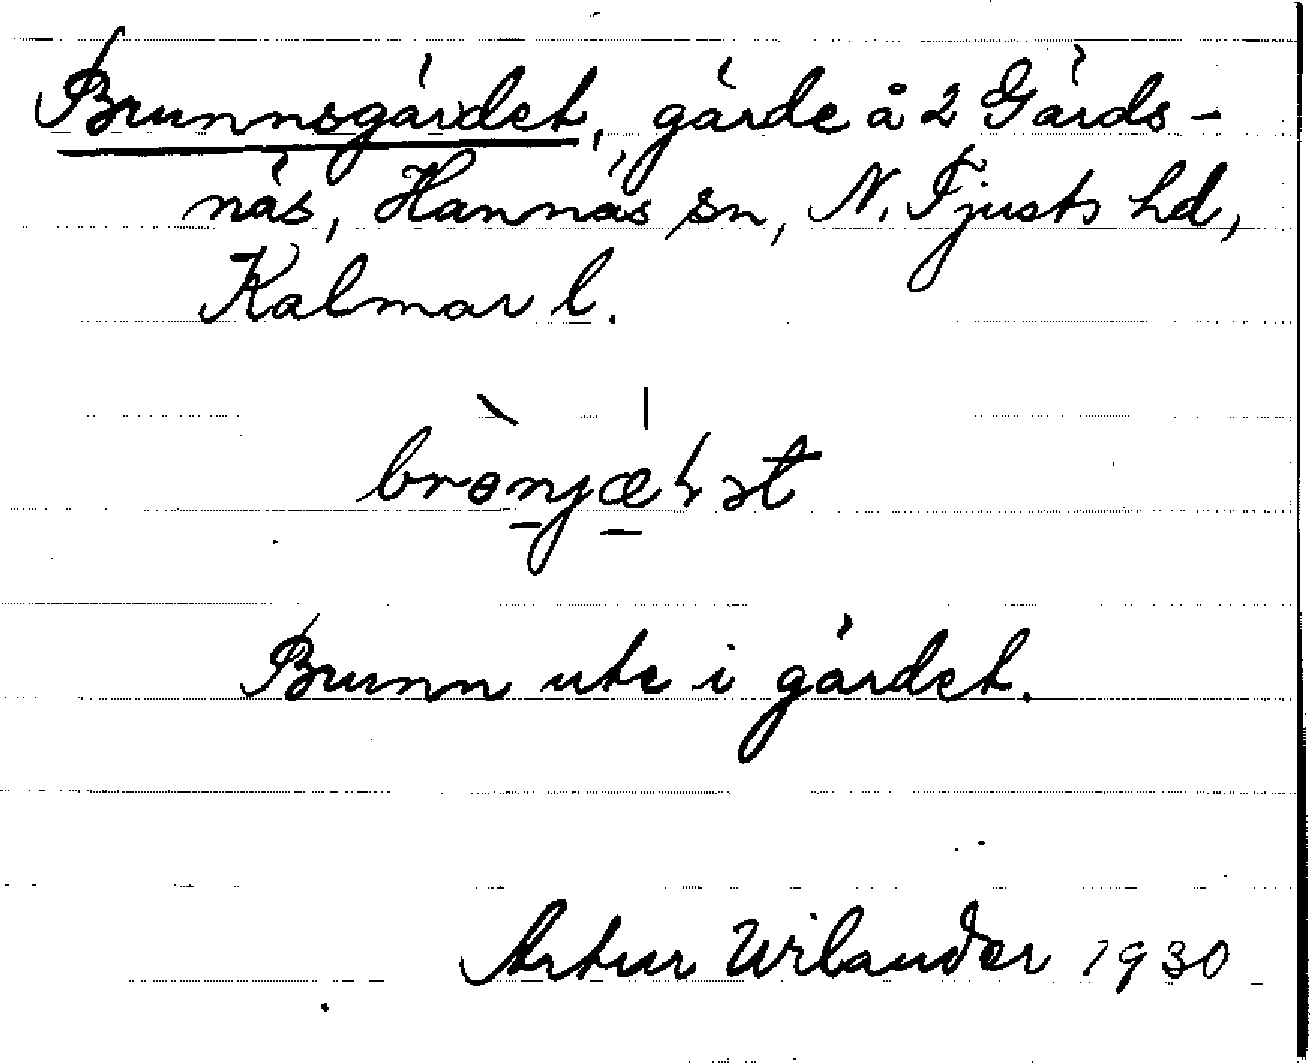 Brunnsgärdet, gärde å 2 Gärds-
näs, Hannäs sn, N. Tjusts hd,
Kalmar l.
Brunn ute i gärdet.
Artur Wilander 1930